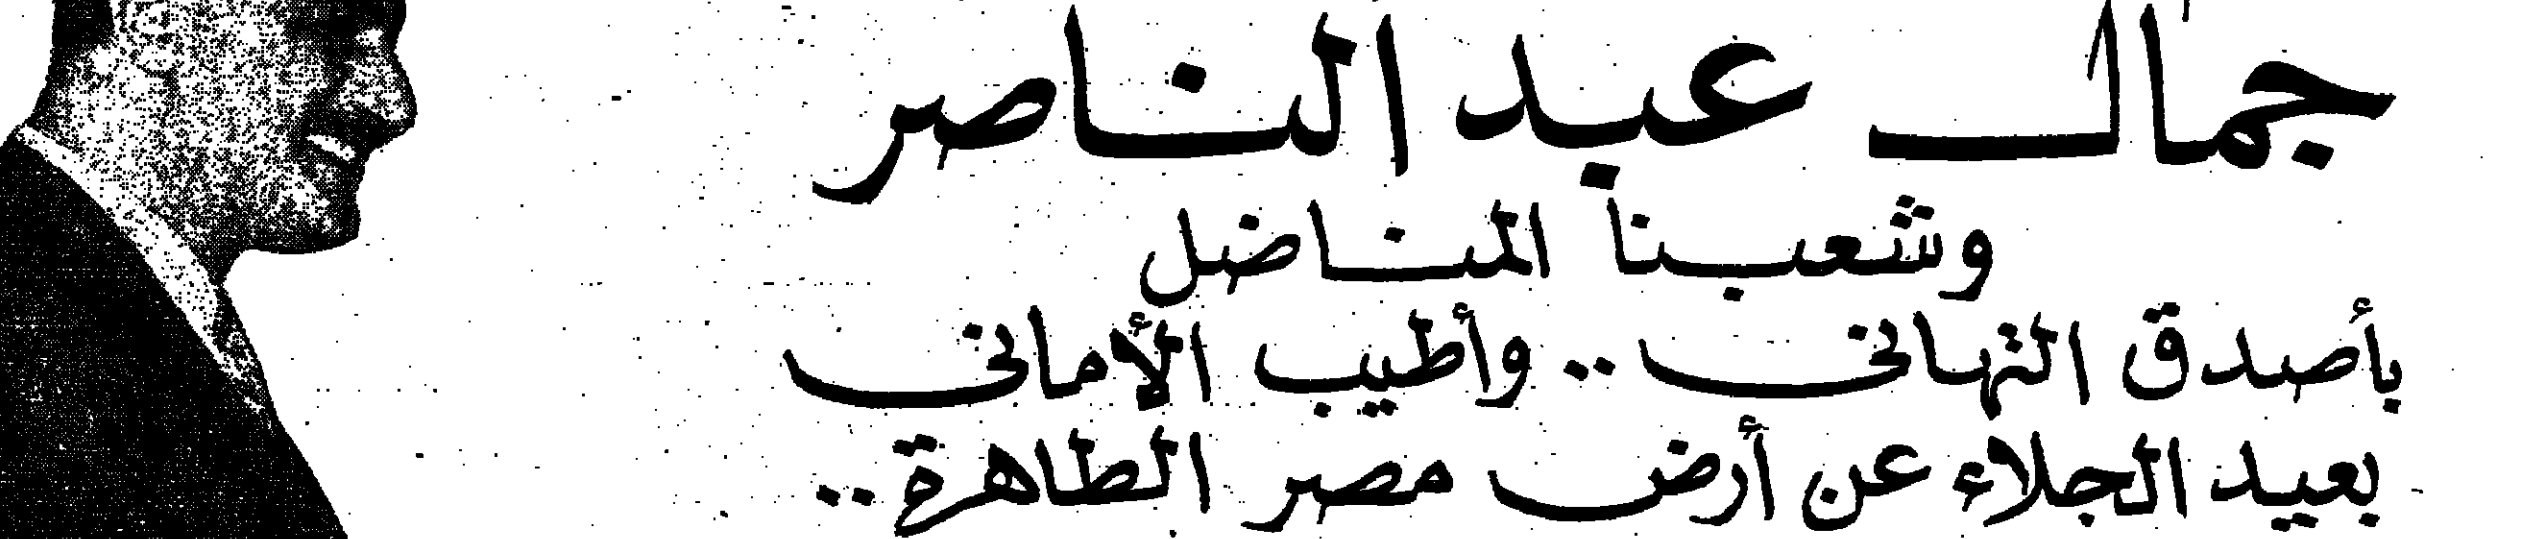 جمال عبد الناصر
وشعبنا المناضل
بأصدق التهانى .. وأطيب الأمانى
بعيد الجلاء عن أرض مصر الطاهرة ..